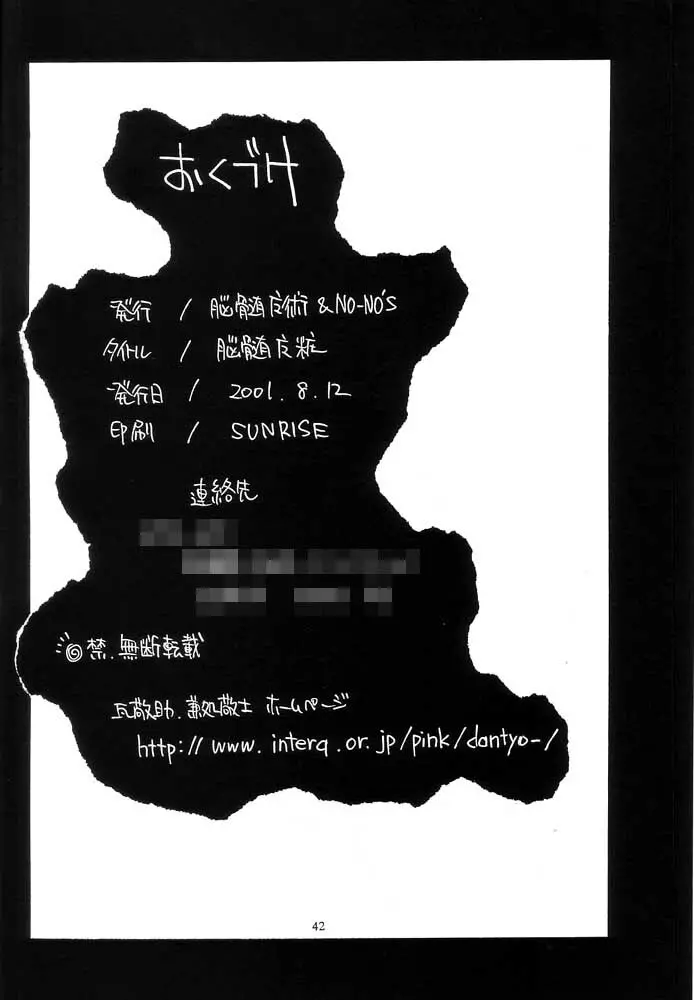 おくづけ
発行 / 脳髄皮術 & NO-NO'S
タイトル / 脳髄皮粧
発行日 / 2001.8.12
印刷 / SUNRISE
連絡先
◎禁.無断転載
瓦敬助.兼処敬士 ホームページ
http://www.interq.or.jp/pink/dantyo-/
42